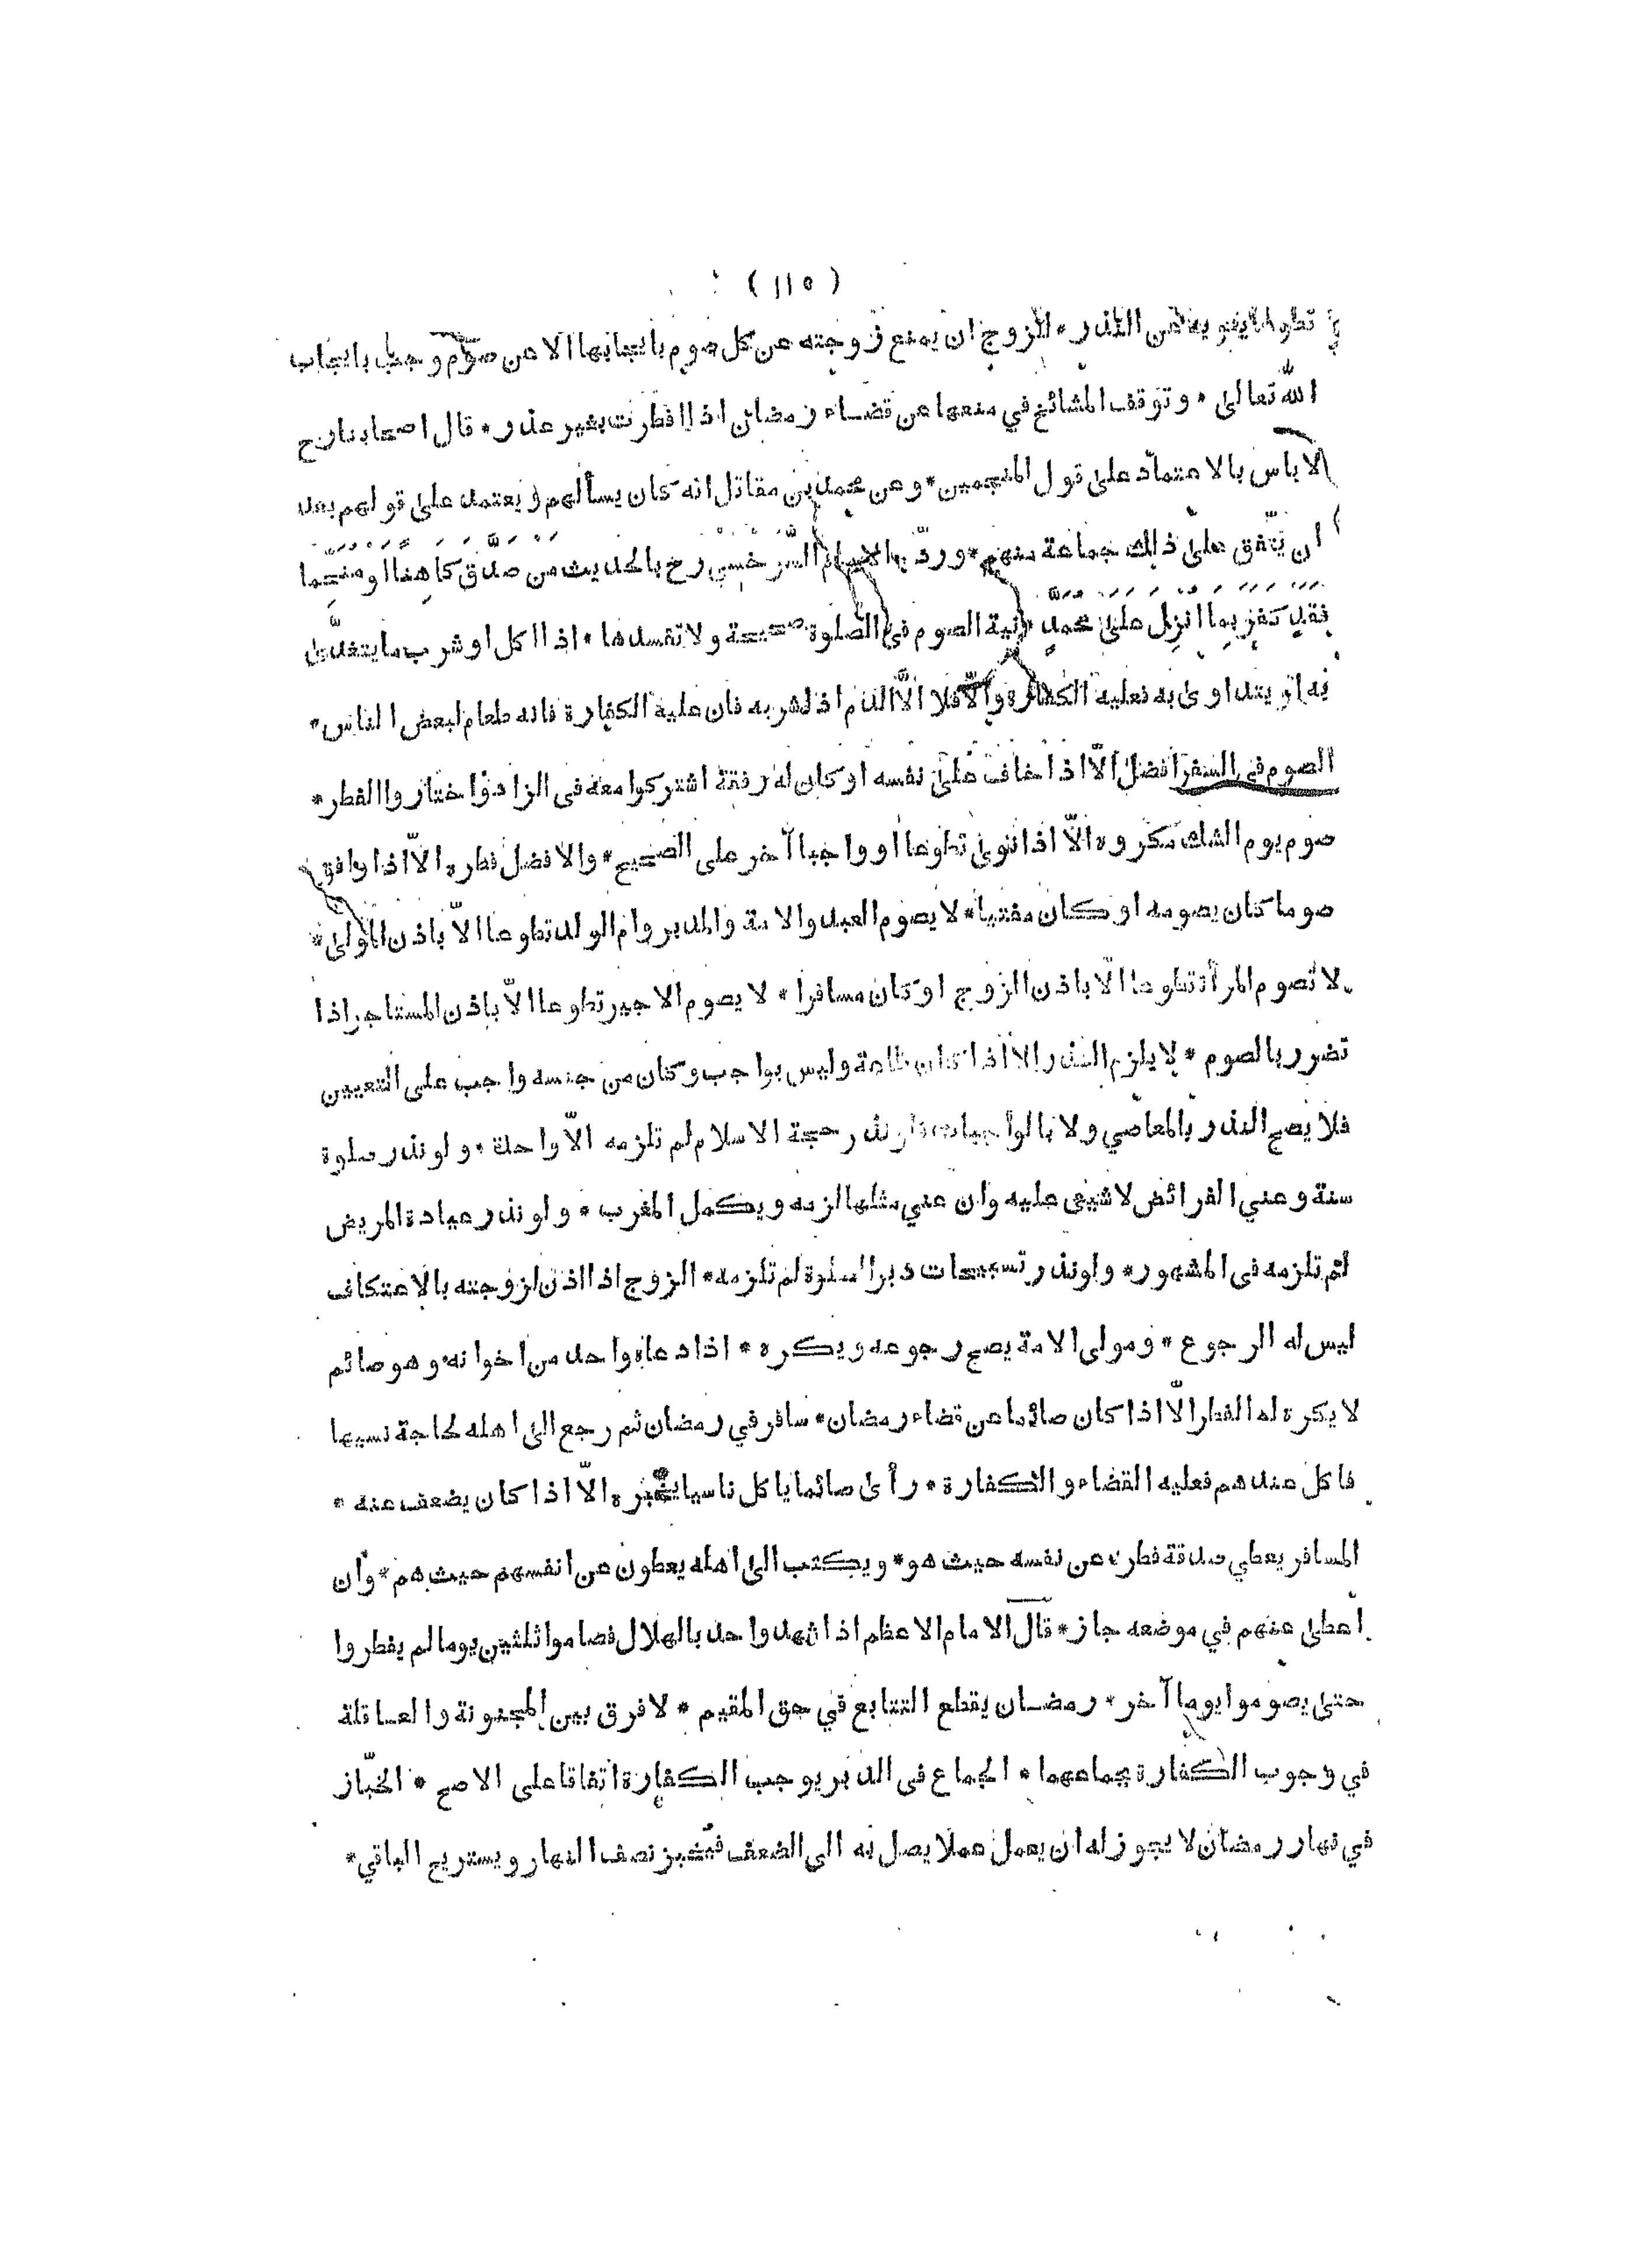 ( ١١٥ )
تطوعا لا بنويه عن النذر * للزوج ان يمنع زوجته عن كل صوم بايجابها الا عن صوم وجب بايجاب
الله تعالى * وتوقف المشائخ في منعها عن قضاء رمضان اذا افطرت بغير عذر * قال اصحابنا رح
لا باس بالاعتماد على قول المنجمين * وعن محمد بن مقاتل انه كان يسألهم ويعتمد على قولهم بعد
ان يتّفق على ذلك جماعة منهم * وردّه الامام السَّرَخْسِي رح بالحديث مَن صَدَّقَ كَاهِنًا او مُنَجِّمًا
فَقَد كَفَرَ بِمَا اُنْزِلَ عَلى مُحَمَّدٍ * نية الصوم في الصلوة صحيحة ولا تفسدها * اذا اكل او شرب ما يتغذّى
به او يتداوى به فعليه الكفارة والّا فلا الّا الدم اذا شربه فان عليه الكفارة فانه طعام لبعض الناس *
الصوم في السفر افضل الّا اذا خاف على نفسه او كان له رفقة اشتركوا معه فى الزاد واختاروا الفطر *
صوم يوم الشك مكروه الّا اذا نوى تطوعا او واجبا آخر على الصحيح * والافضل فطره الّا اذا وافق
صوما كان يصومه او كان مفتيا * لا يصوم العبد والامة والمدبر وام الولد تطوعا الّا باذن المولى *
لا تصوم المرأة تطوعا الّا باذن الزوج او كان مسافرا * لا يصوم الاجير تطوعا الّا باذن المستاجر اذا
تضرر بالصوم * لا يلزم النذر الا اذا كان طاعة وليس بواجب وكان من جنسه واجب على التعيين
فلا يصح النذر بالمعاصي ولا بالواجبات فلو نذر حجة الاسلام لم تلزمه الّا واحدة * ولو نذر صلوة
سنة وعنى الفرائض لا شيئى عليه وان عني مثلها لزمه ويكمل المغرب * ولو نذر عيادة المريض
لم تلزمه فى المشهور * ولو نذر تسبيحات دبر الصلوة لم تلزمه * الزوج اذا اذن لزوجته بالاعتكاف
ليس له الرجوع * ومولى الامة يصح رجوعه ويكره * اذا دعاه واحد من اخوانه وهو صائم
لا يكره له الفطر الّا اذا كان صائما عن قضاء رمضان * سافر في رمضان ثم رجع الى اهله لحاجة نسيها
فاكل عندهم فعليه القضاء والكفارة * رأى صائما ياكل ناسيا يخبره الّا اذا كان يضعف عنه *
المسافر يعطي صدقة فطره عن نفسه حيث هو * ويكتب الى اهله يعطون عن انفسهم حيث هم * وان
اعطى عنهم في موضعه جاز * قال الامام الاعظم اذا شهد واحد بالهلال فصاموا ثلثين يوما لم يفطروا
حتى يصوموا يوما آخر * رمضان يقطع التتابع في حق المقيم * لا فرق بين المجنونة والعاقلة
في وجوب الكفارة بجماعهما * الجماع فى الدبر يوجب الكفارة اتفاقا على الاصح * الخبّاز
في نهار رمضان لا يجوز له ان يعمل عملا يصل به الى الضعف فيخبز نصف النهار ويستريح الباقي *